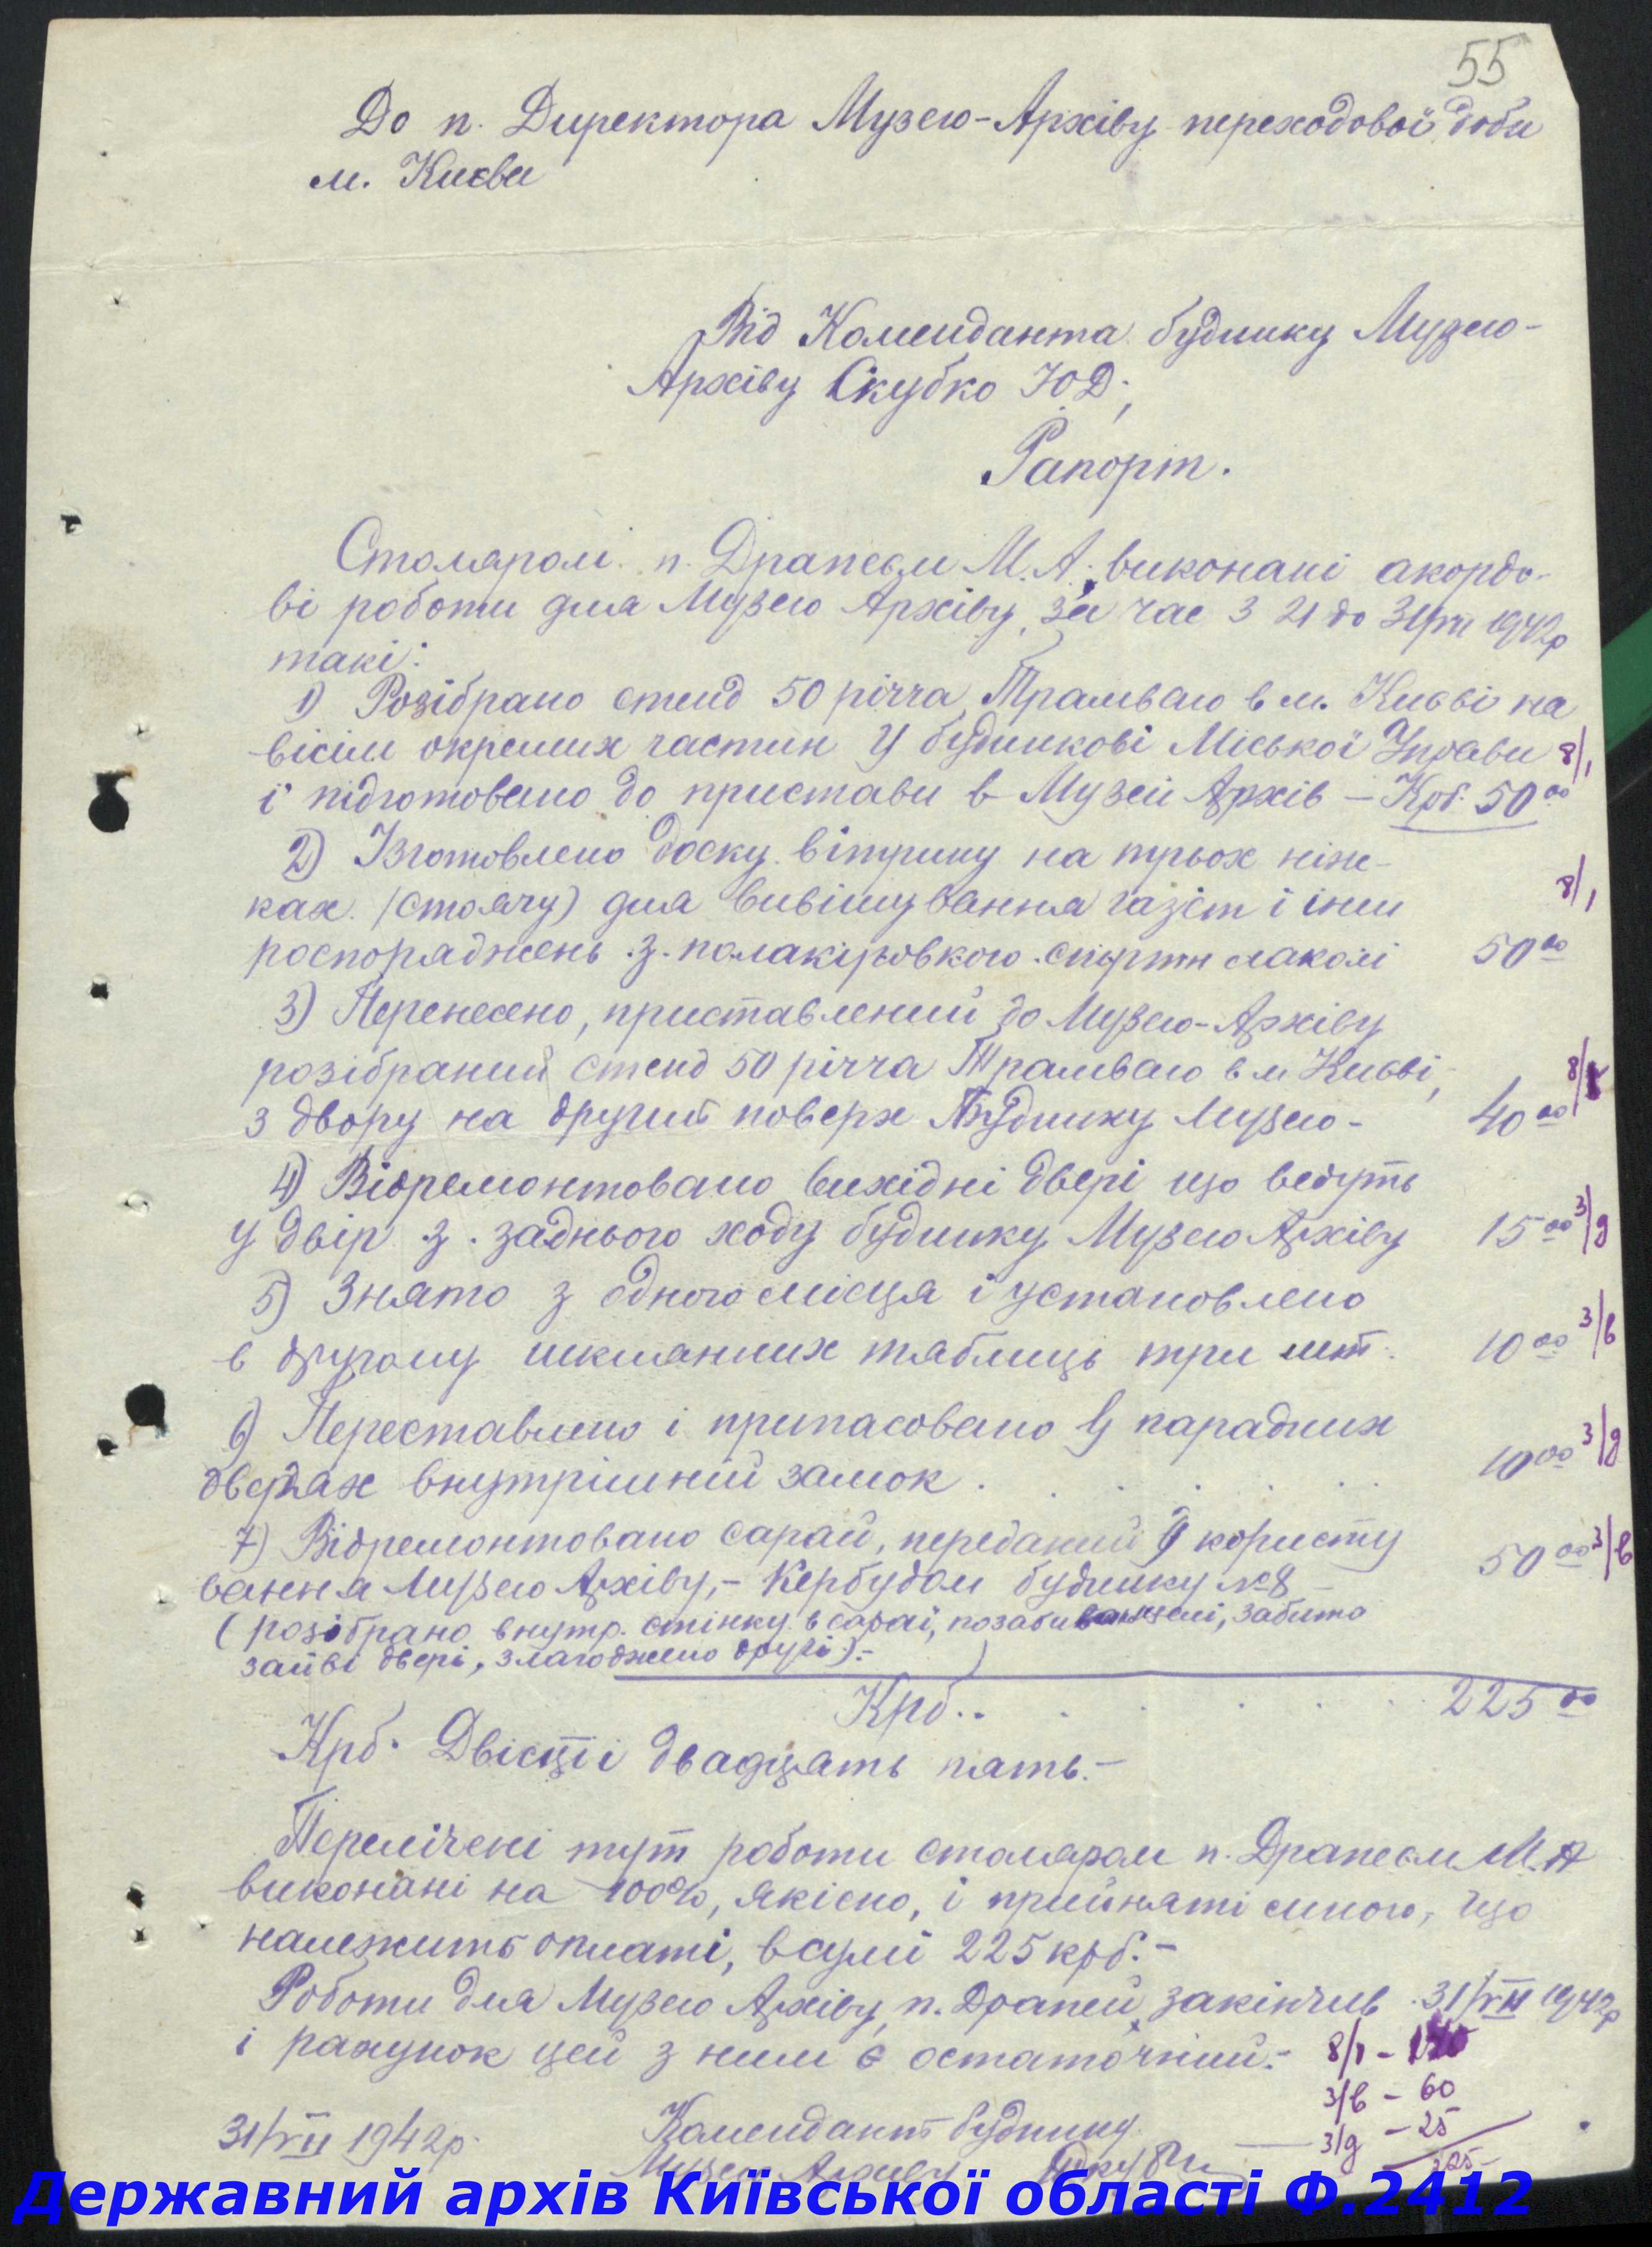 55
До п. Директора Музею-Архіву переходової доби
м. Києва
Від Коменданта будинку Музею-
Архіву Скубко Ю Д.,
Рапорт.
Столяром п. Драпєєм М. А. виконані акордо-
ві роботи для Музею Архіву, за час з 21 до 31/VII 1942р
такі:
1) Розібрано стенд 50 річча Трамваю в м. Києві на
вісім окремих частин у будинкові Міської Управи 8/1
і підготовано до пристави в Музей Архів – Крб. 50 00
2) Ізготовлено доску вітрину на трьох ніж-
ках. (стоячу) для вивішування газет і інш 8/1
роспоряджень з полакіровкою спиртн лаком 50 00
3) Перенесено, приставлений до Музею-Архіву
розібраний стенд 50 річча Трамваю в м Києві,
з двору на другий поверх Будинку Музею- 40 00
4) Відремонтовано вихідні двері що ведуть
у двір з заднього ходу будинку Музею Архіву 15 00 3/g
5) Знято з одного місця і установлено
в другому шклянних таблиць три шт. 10 00 3/в
6) Переставлено і припасовано у парадних
дверях внутрішній замок . . . . . . 10 00 3/g
7) Відремонтовано сарай, переданий у користу
вання Музею Архіву,- Кербудом будинку №8 50 00 3/в
(розібрано внутр. стінку в сараї, забито
зайві двері, злагоджено другі).-
Крб. . . . . . 225 00
Крб. Двісті двадцять пять.-
Перелічені тут роботи столяром п. Драпєєм М. А
виконані на 100%, якісно, і прийняті мною, що
належить оплаті, в сумі 225 крб.-
Роботи для Музею Архіву, п. Драпей закінчив 31/VII 1942р
і рахунок цей з ним є остаточний.- 8/1 -
3/в - 60
3/g - 25
225-
31/VII 1942р.
Комендант будинку
Музею Архіву
Державний архів Київської області Ф.2412